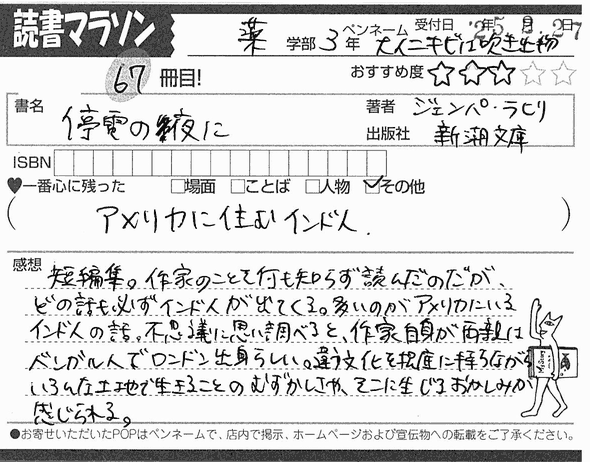 読書マラソン
薬 学部 3年 ペンネーム 大人ニキビは吹き出物 受付日 '25 年 月 2日
67 冊目! おすすめ度 ★★★☆☆
書名 停電の夜に
著者 ジュンパ・ラヒリ
出版社 新潮文庫
ISBN
♥一番心に残った □場面 □ことば □人物 ☑その他
( アメリカに住むインド人. )
感想
短編集。作家のことを何も知らず読んだのだが、
どの話も必ずインド人が出てくる。多いのがアメリカにいる
インド人の話。不思議に思い調べると、作家自身が両親は
ベンガル人でロンドン出身らしい。違う文化を根底に持ちながら
いろんな土地で生きることのむずかしさや、そこに生じるおかしみが
感じられる。
●お寄せいただいたPOPはペンネームで、店内で掲示、ホームページおよび宣伝物への転載をご了承ください。